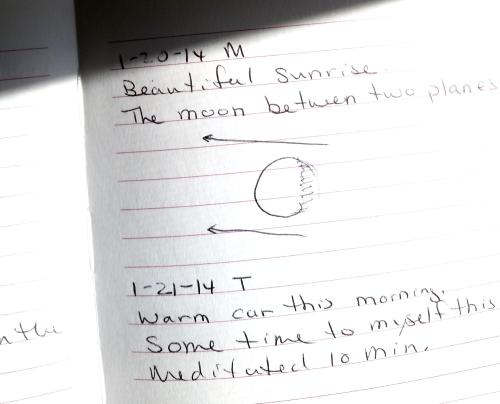 1-20-14 M
Beautiful sunrise
The moon between two planes
1-21-14 T
Warm car this morning.
Some time to myself this
Meditated 10 min.